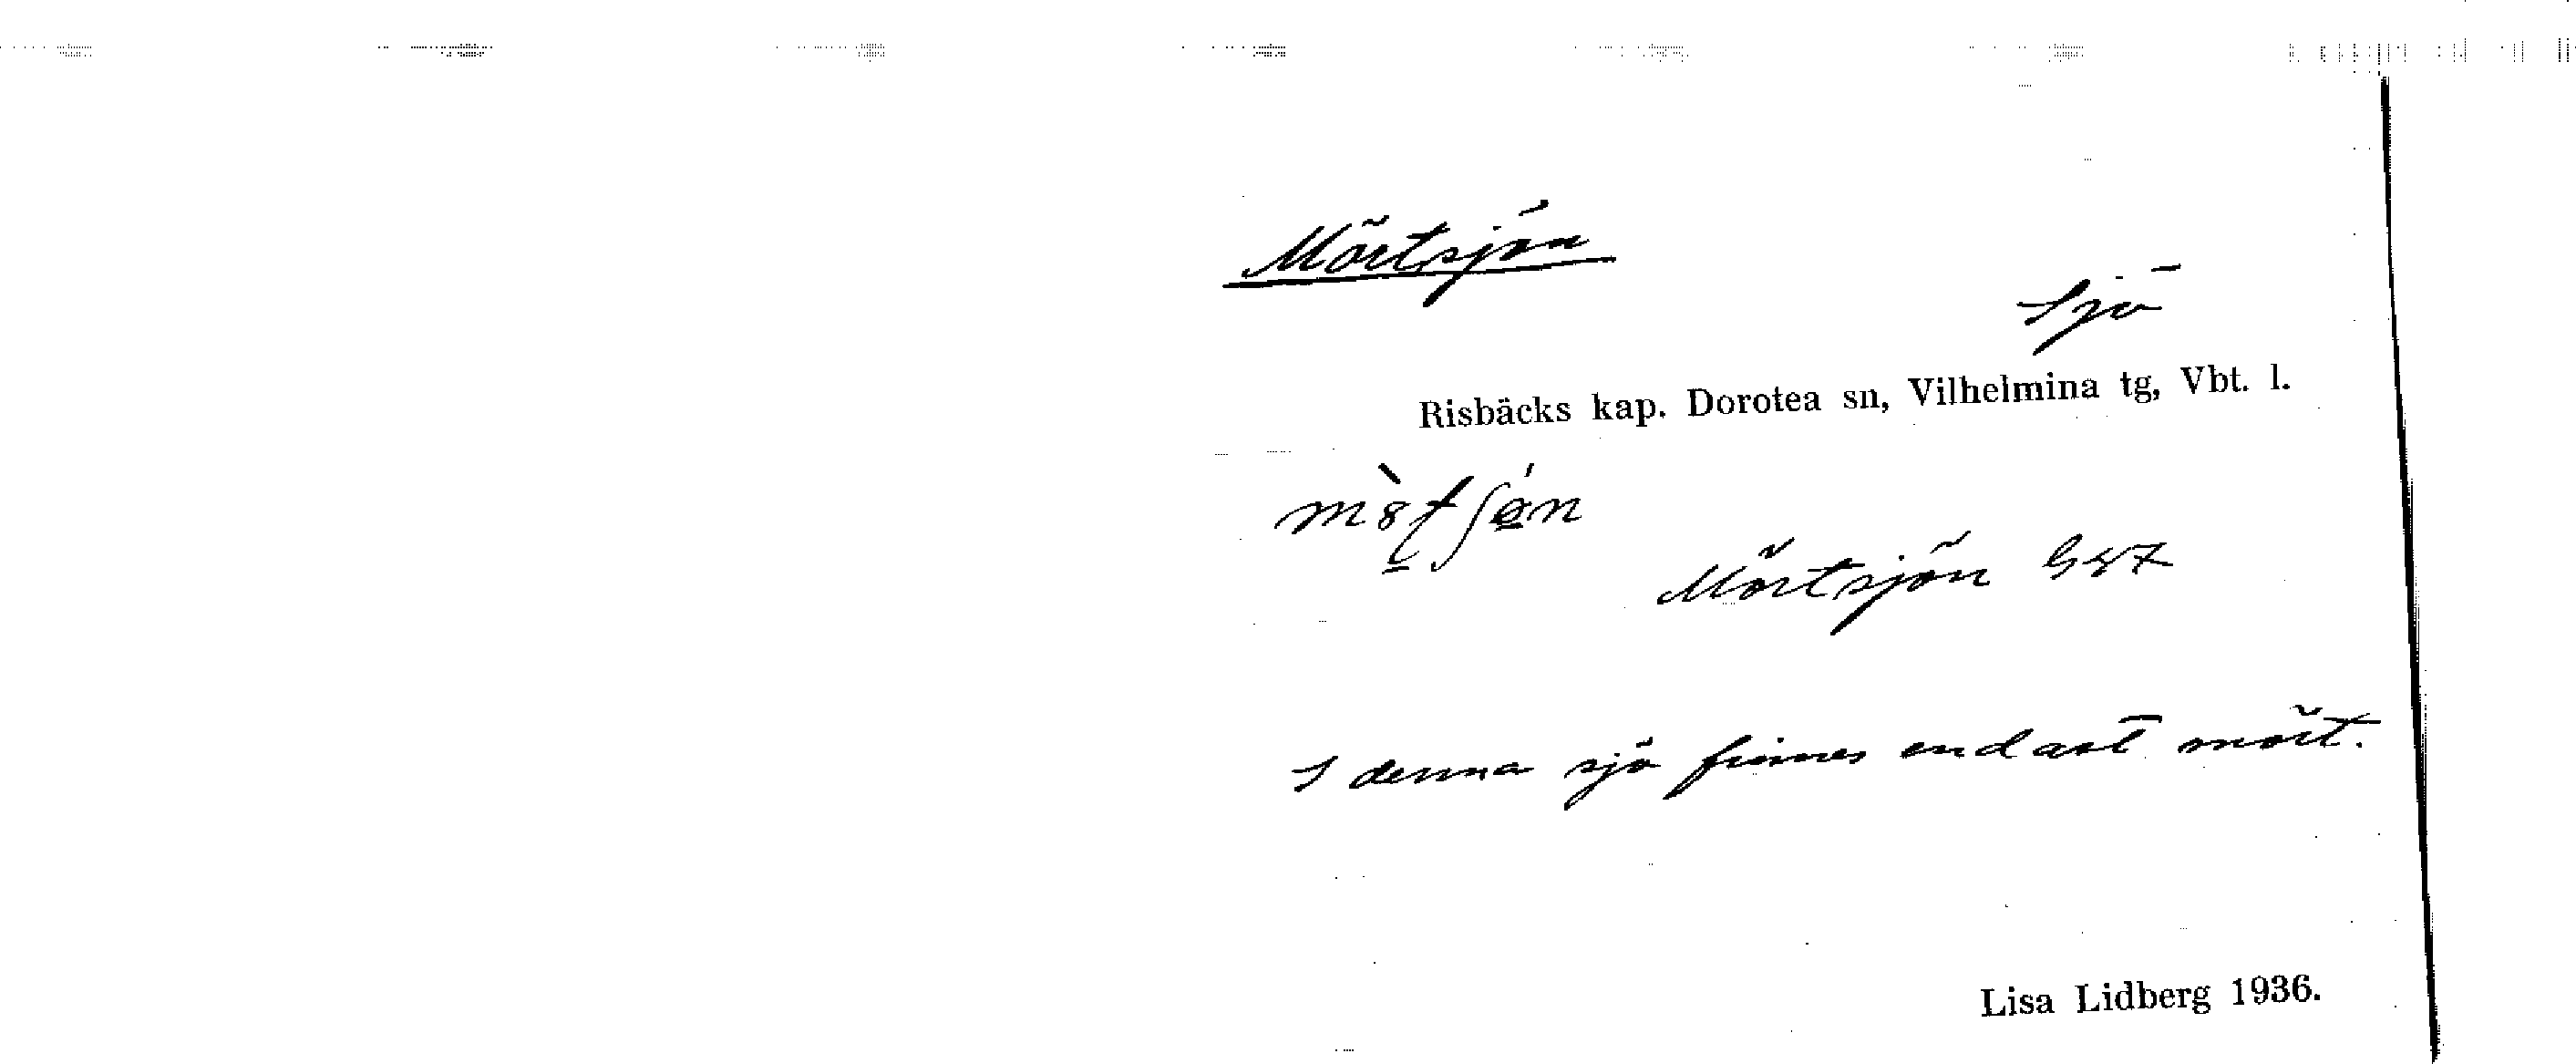 Mörtsjön
Sjö
Risbäcks kap. Dorotea sn, Vilhelmina tg, Vbt. l.
Mörtsjön
I denna sjö finnes endast mört.
Lisa Lidberg 1936.